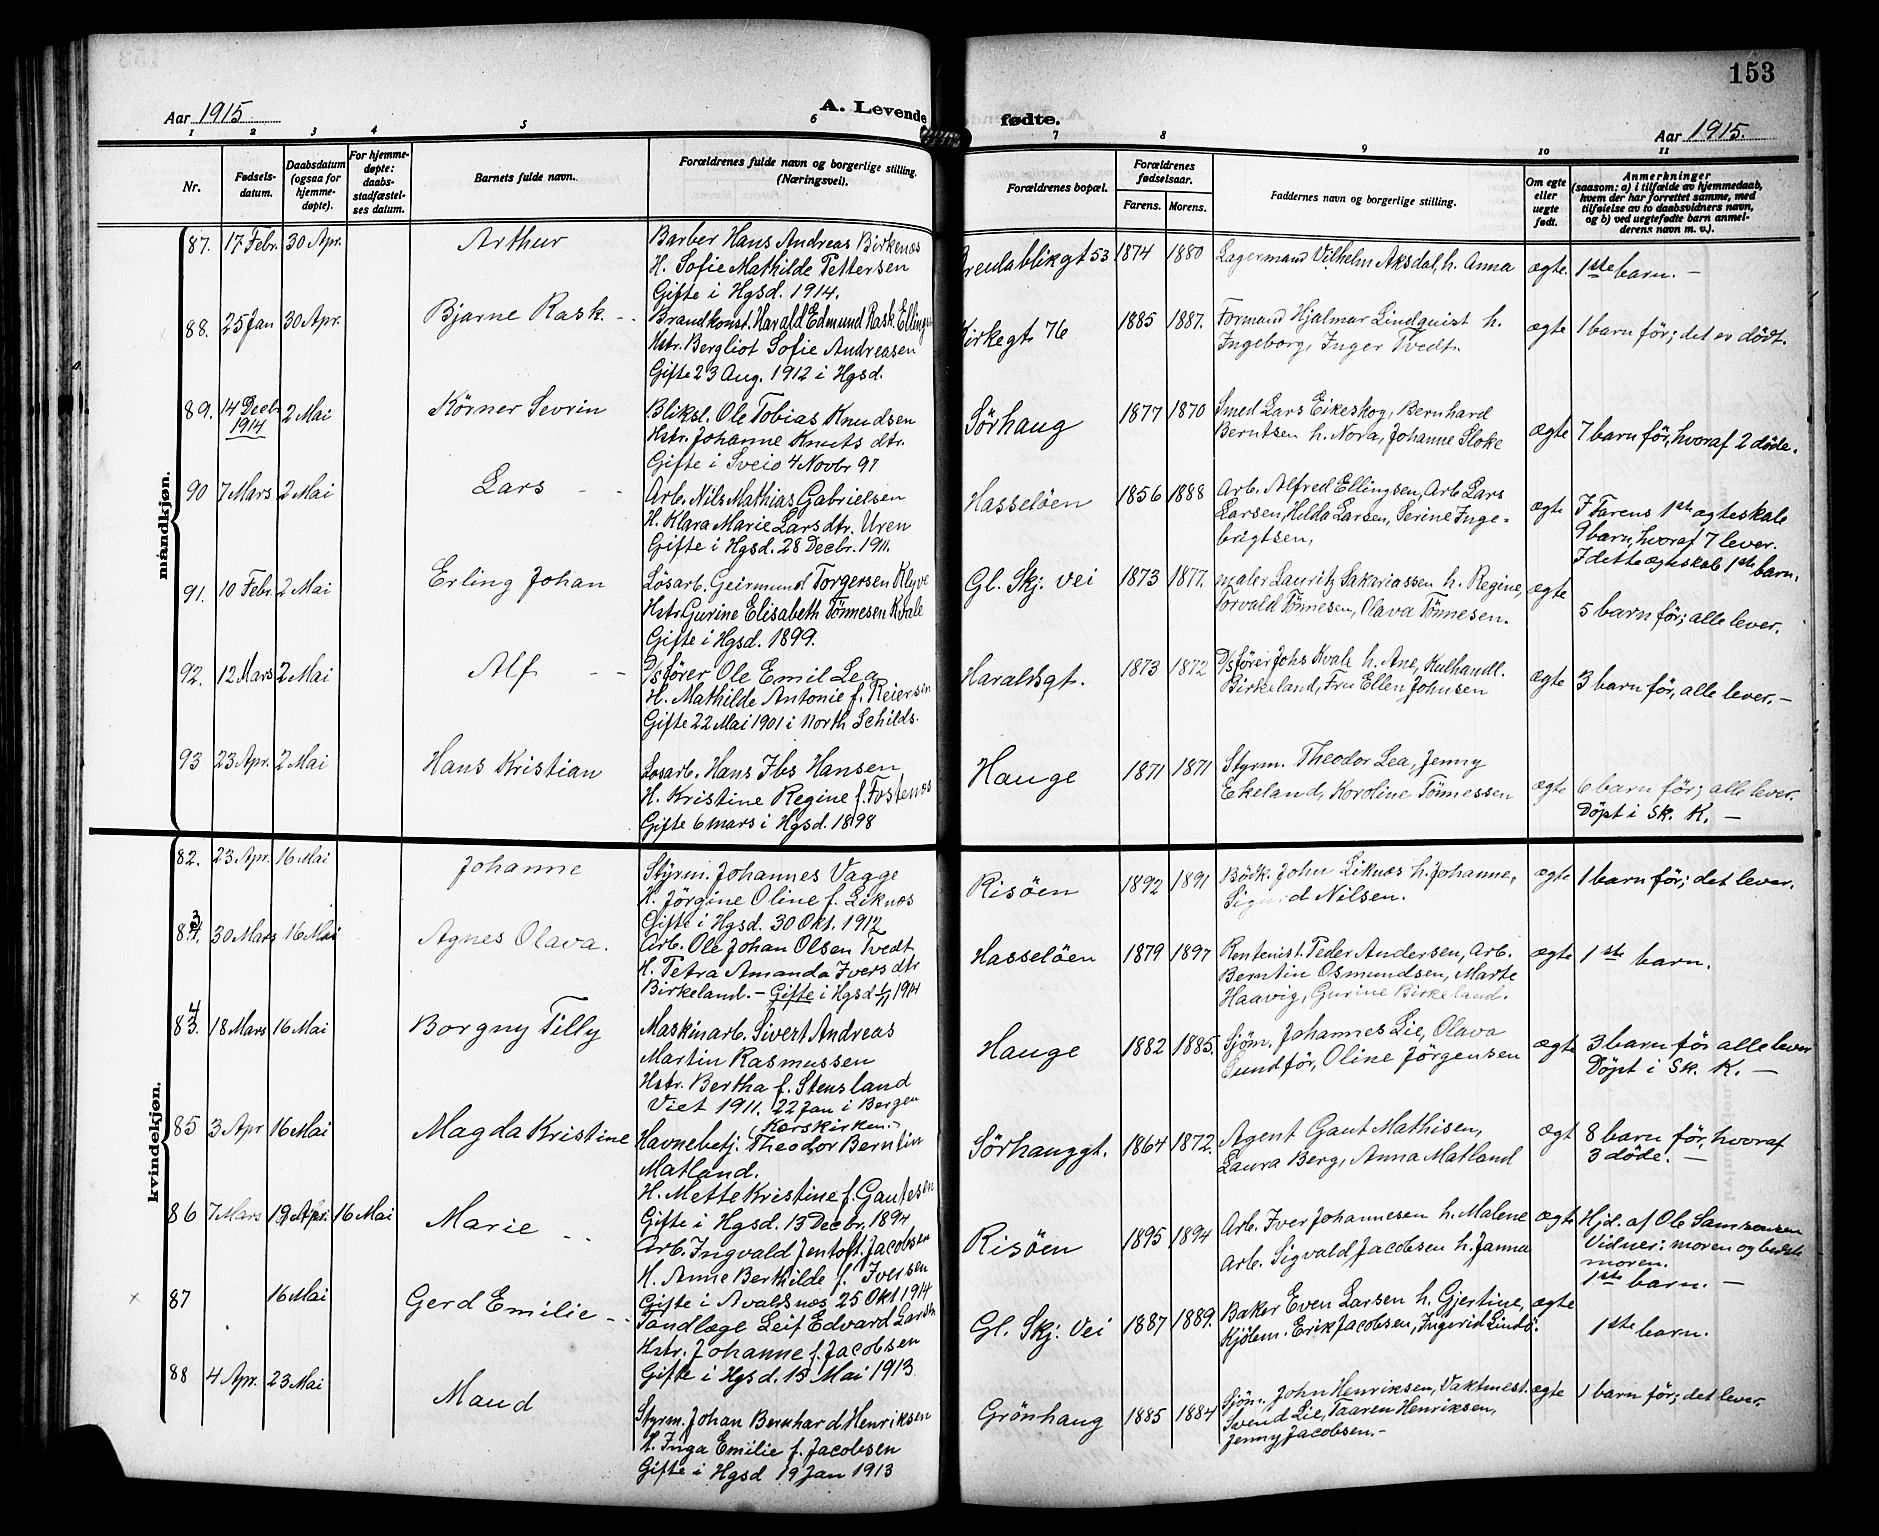 153
Aar 1915
A. Levende fødte.
Aar 1915.
1 2 3 4 5 6 7 8 9 10 11
Nr.
Fødsels-
datum.
Daabsdatum
(ogsaa for
hjemme-
døpte).
For hjemme-
døpte:
daabs-
stadfæstel-
ses datum.
Barnets fulde navn.
Forældrenes fulde navn og borgerlige stilling.
(Næringsvei).
Forældrenes bopæl.
Forældrenes
fødselsaar.
Farens. Morens.
Faddernes navn og borgerlige stilling.
Om egte
eller
uegte
født.
Anmerkninger
(saasom: a) i tilfælde av hjemmedaab,
hvem der har forrettet samme, med
tilføielse av to daabsvidners navn,
og b) ved uegtefødte barn anmel-
derens navn m. v.).
mandkjøn.
87. 17 Febr. 30 Apr. Arthur
Barber Hans Andreas Birkenæs
H. Sofie Mathilde Pettersen
Gifte i Hgsd. 1914.
53 1874 1880
Lagermand Vilhelm Aksdal, h. Anna
ægte. 1ste barn. -
88. 25 Jan 30 Apr. Bjarne Rask
Brandkonst. Harald Edmund Rask
Hstr. Bergliot Sofie Andreasen
Gifte 23 Aug. 1912 i Hgsd.
Kirkegt. 76 1885 1887.
Formand Hjalmar Lindquist h.
Ingeborg, Inger Tvedt.
ægte 1 barn før; det er dødt.
89. 14 Decbr 1914 2 Mai Körner Sevrin
Bliksl. Ole Tobias Knudsen
Hstr. Johanne Knuts dtr.
Gifte i Sveio 4 Novbr 97
Sörhaug 1877 1870
Smed Lars Eikeskog, Bernhard
Berntsen h. Nora, Johanne Stoke
ægte 7 barn før, hvoraf 2 døde.
90 7 Mars 2 Mai Lars
Arb. Nils Mathias Gabrielsen
H. Klara Marie Lars dtr. Uren
Gifte i Hgsd. 28 Decbr. 1911.
Hasselöen 1856 1888
Arb. Alfred Ellingsen, Arb Lars
Larsen, Hilda Larsen, Serine Inge-
brigtsen,
ægte I Farens 1ste ægteskab
9 barn, hvoraf 7 lever.
I dette ægteskab 1ste barn.
91. 10 Febr. 2 Mai Erling Johan
Løsarb. Geirmund Torgersen Klyve
Hstr. Gurine Elisabeth Tönnesen Kvale
Gifte i Hgsd. 1899.
Gl. Skj. vei 1873 1877.
maler Lauritz Sakariassen h. Regine,
Torvald Tönnesen, Olava Tönnesen.
ægte 5 barn før; alle lever.
92. 12 Mars 2 Mai Alf
D/s fører Ole Emil Lea
H. Mathilde Antonie f. Reiersen
Gifte 22 Mai 1901 i North Schilds.
Haraldsgt. 1873 1872
D/s fører Johs Kvale h. Ane, Kulhandl.
Birkeland, Fru Ellen Johnsen
ægte 3 barn før, alle lever. -
93 23 Apr. 2 Mai Hans Kristian
Løsarb. Hans Ibs Hansen
H. Kristine Regine f. Fostenæs
Gifte 6 mars i Hgsd. 1898
Hauge 1871 1871
Styrm. Theodor Lea, Jenny
Ekeland, Karoline Tönnessen
ægte 6 barn før; alle lever.
Döpt i Sk. K. -
kvindekjøn.
82. 23 Apr. 16 Mai Johanne
Styrm. Johannes Vagge
H. Jörgine Oline f. Liknæs
Gifte i Hgsd. 30 Okt. 1912
Risöen 1892 1891
Bödk. John Liknæs h. Johanne,
Sigurd Nilsen.
ægte 1 barn før; det lever.
83. 30 Mars 16 Mai Agnes Olava.
Arb. Ole Johan Olsen Tvedt
H. Petra Amanda Ivers dtr
Birkeland. - Gifte i Hgsd 1914
Hasselöen 1879 1897
Rentenist. Peder Andersen, Arb.
Berntin Osmundsen, Marte
Haavig, Gurine Birkeland.
ægte 1ste barn.
84. 18 Mars 16 Mai Borgny Tilly
Maskinarb. Sivert Andreas
Martin Rasmussen
Hstr. Bertha f. Stensland
Viet 1911. 22 Jan i Bergen
(Korskirken.)
Hauge 1882 1885.
Sjöm. Johannes Lie, Olava
Sundför, Oline Jörgensen
ægte 3 barn før alle lever
Döpt i Sk. K. -
85 3 Apr 16 Mai Magda Kristine
Havnebetj. Theodor Berntin
Matland.
H. Mette Kristine f. Gautesen
Gifte i Hgsd. 13 Decbr. 1894
Sörhauggt. 1864 1872.
Agent Gaut Mathisen,
Laura Berg, Anna Matland
ægt 8 barn før, hvoraf
3 døde. -
86 7 Mars 19 Apr. 16 Mai Marie
Arb. Ingvald Jentoft Jacobsen
H. Anne Berthilde f. Iversen
Gifte i Avaldsnæs 25 Okt 1914
Risöen 1895 1894
Arb. Iver Johannesen h. Malene
Arb. Sigvald Jacobsen h. Janna
ægte Hjd. af Ole Samsonsen
Vidner: moren og beste
moren.
1ste barn. -
87 16 Mai Gerd Emilie
Tandlæge Leif Edvard Larsen
Hstr. Johanne f. Jacobsen
Gifte i Hgsd. 15 Mai 1913
Gl. Skj. Vei 1887 1889.
Baker Even Larsen h. Gjertine,
Kjölem. Erik Jacobsen, Ingerid Lindö.
ægte 1ste barn.
88 4 Apr. 23 Mai Maud
Styrm. Johan Bernhard Henriksen
H. Inga Emilie f. Jacobsen
Gifte i Hgsd 19 Jan 1913
Grönhaug 1885 1884
Sjöm. John Henriksen, Vaktmest.
Svend Lie, Taaren Henriksen,
Jenny Jacobsen. -
ægte 1 barn før; det lever.